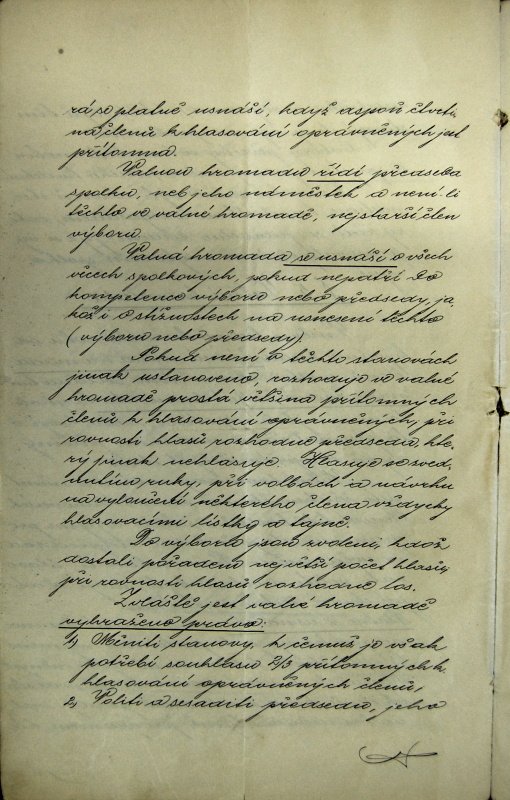 rá se platně usnáší, když aspoň čtvrti-
na členů k hlasování oprávněných jest
přítomna.
Valnou hromadu řídí předseda
spolku, neb jeho náměstek a není-li
těchto ve valné hromadě, nejstarší člen
výboru.
Valná hromada se usnáší o všech
věcech spolkových, pokud nepatří do
kompetence výboru nebo předsedy, ja-
kož i o stížnostech na usnesení těchto
(výboru nebo předsedy)
Pokud není v těchto stanovách
jinak ustanoveno, rozhoduje ve valné
hromadě prostá většina přítomných
členů k hlasování oprávněných, při
rovnosti hlasů rozhodne předseda, kte-
rý jinak nehlasuje. Hlasuje se zved-
nutím ruky, při volbách a návrhu
na vyloučení některého člena vždycky
hlasovacími lístky a tajně.
Do výboru jsou zvoleni, kdož
dostali pořadem největší počet hlasů,
při rovnosti hlasů rozhodne los.
Zvláště jest valné hromadě
vyhraženo právo:
1) Měniti stanovy, k čemuž je však
potřebí souhlasu 2/3 přítomných k
hlasování oprávněných členů,
2) Voliti a sesaditi předsedu, jeho